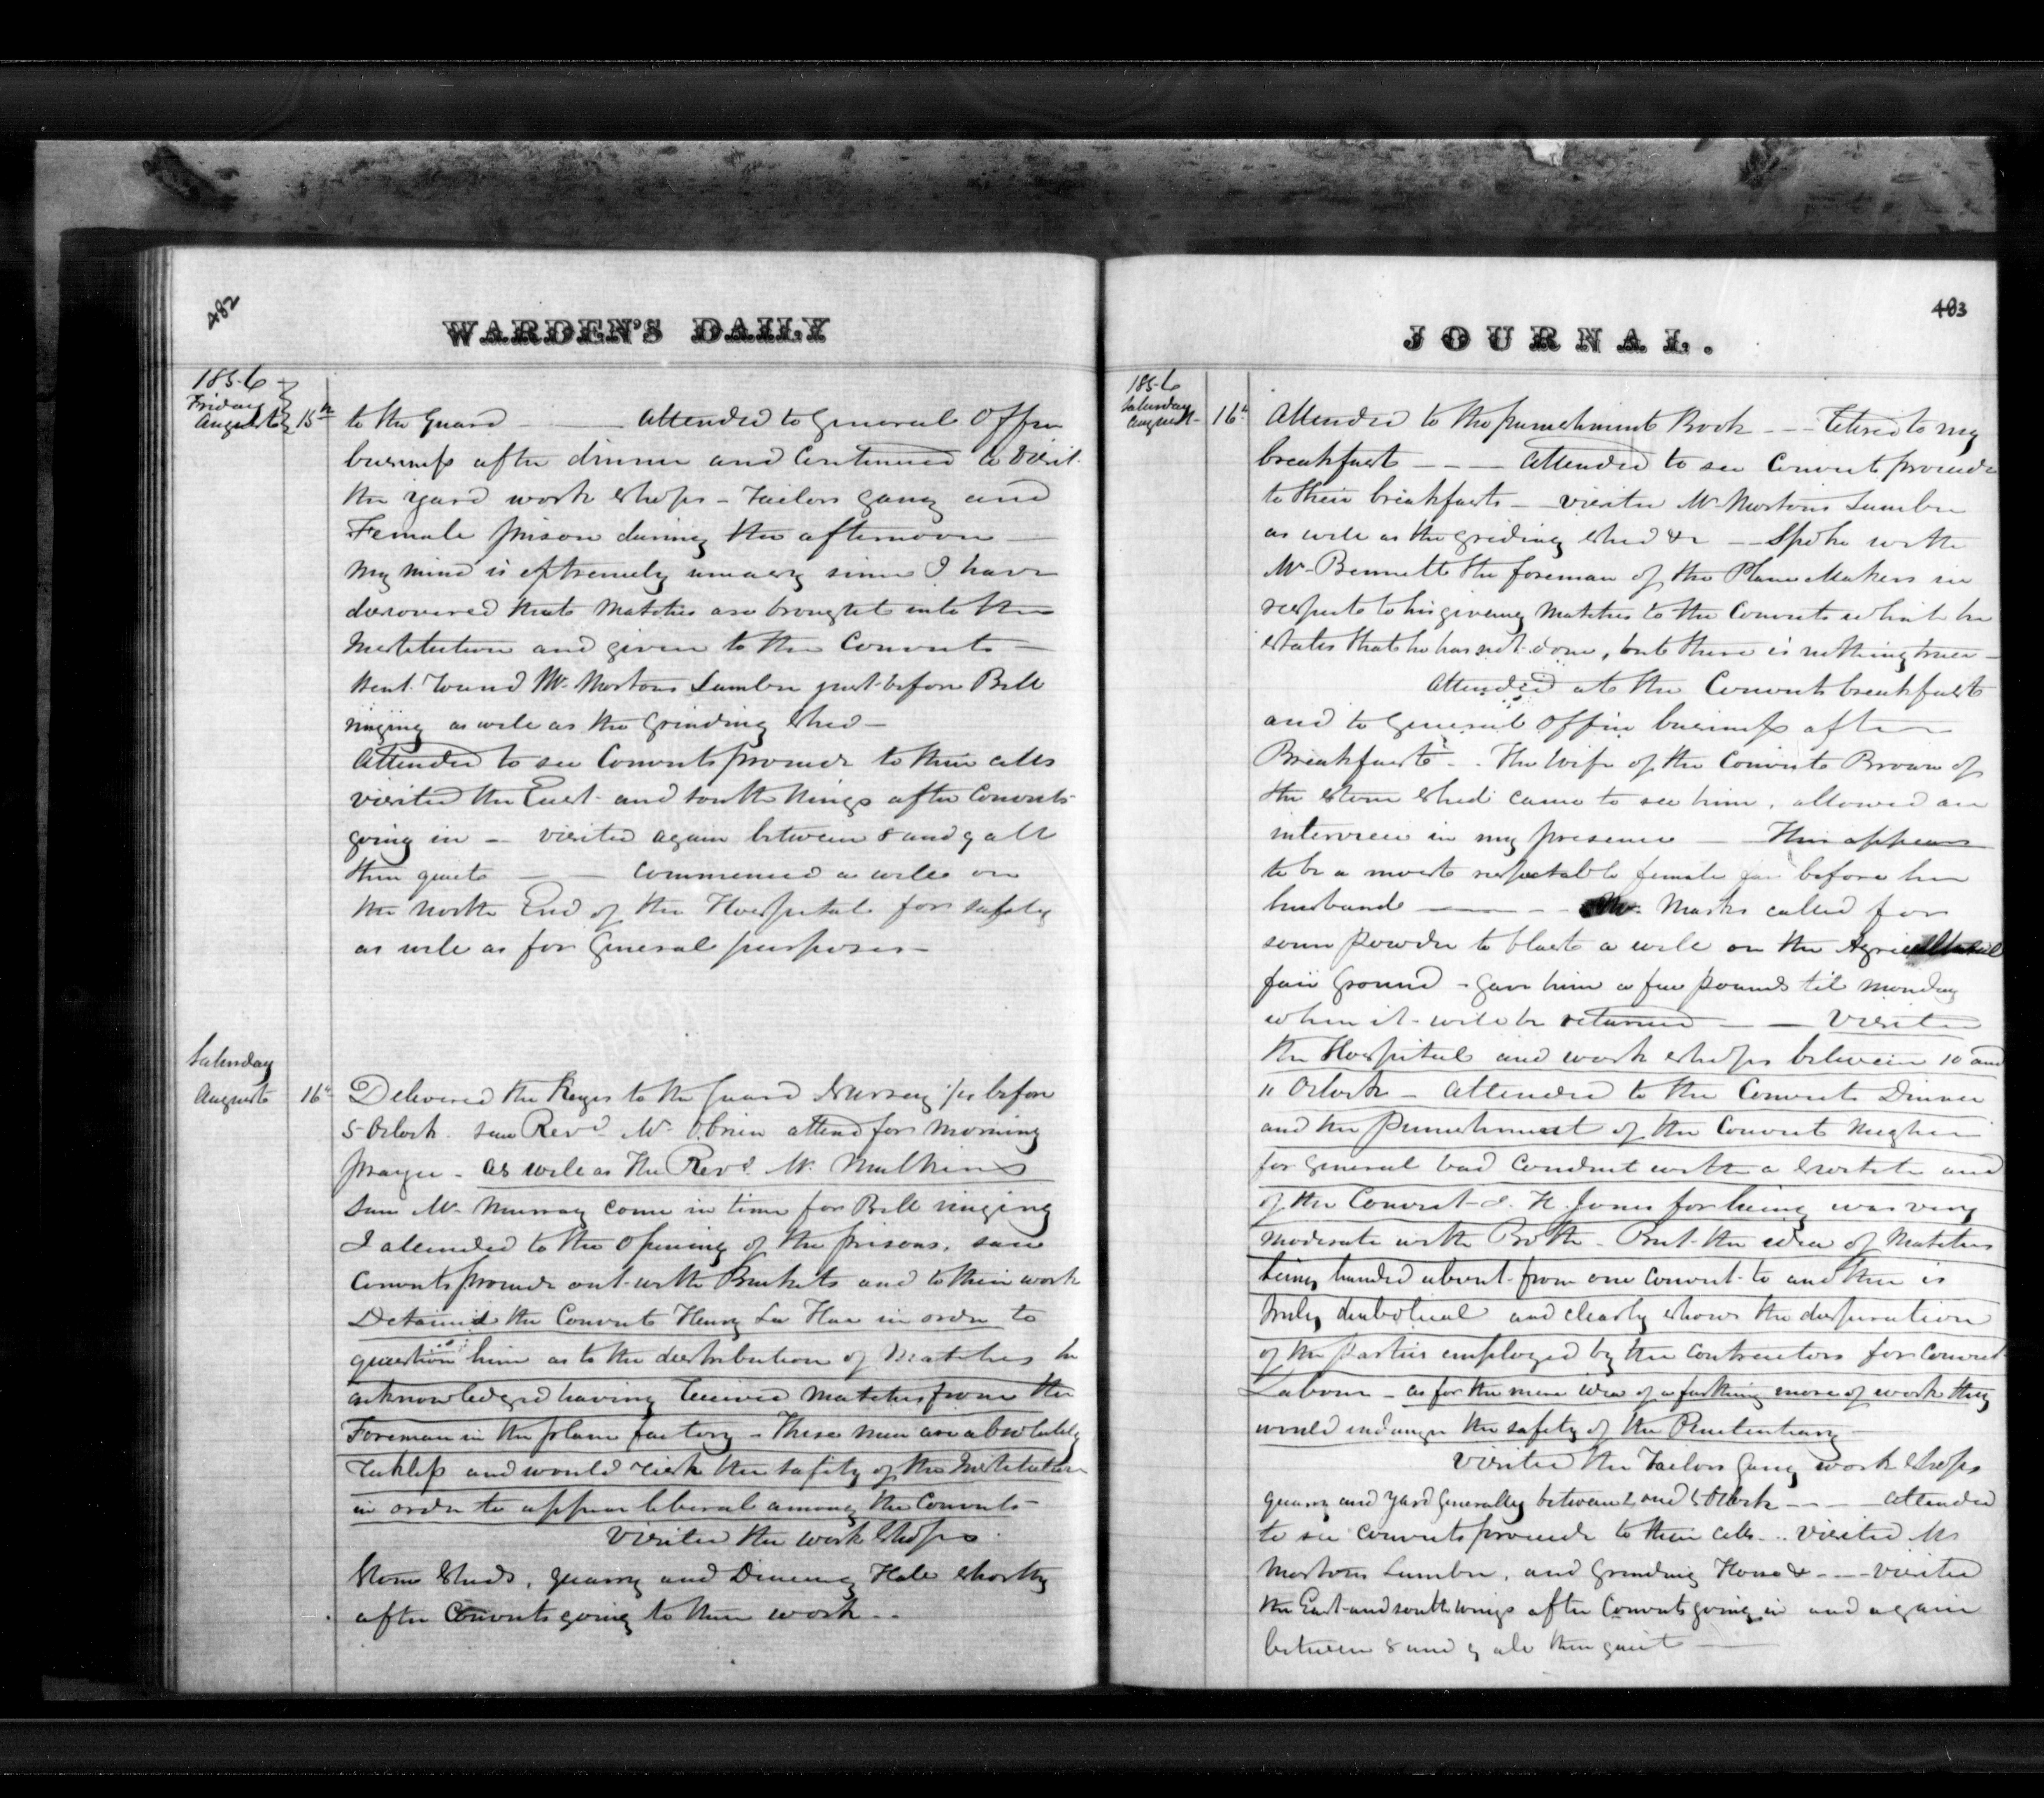 482
WARDEN'S DAILY
1856
Friday
August 15th
to the Guard — attended to General Office
business after dinner and Continued to visit
the yard work shops - Tailors gang and
Female prison during the afternoon —
My mind is extremely uneasy since I have
discovered that matches are brought into the
Institution and given to the Convicts —
Went round Mr Mortons Lumber just before Bell
ringing as well as the Grinding shed —
Attended to see Convicts proceed to their cells
visited the East and South Wings after Convicts
going in — visited again between 8 and 9 all
then quiet — — Commenced a well on
the North End of the Hospital for safety
as well as for General purposes —
Saturday
August 16th
Delivered the Keys to the Guard before
5 Oclock saw Revd Mr Obrien attend for morning
prayer - as well as the Revd Mr. Mulkins
Saw Mr Murray come in time for Bell ringing
I attended to the opening of the prisons, saw
Convicts proceed out with Buckets and to their work
Detained the Convict Henry in order to
question him as to the distribution of Matches he
acknowledged having received matches from the
Foreman in the plane factory — These men are absolutely
reckless and would risk the safety of the Institution
in order to appear liberal among the Convicts —
Visited the work shops
Stone Sheds, quarry and Dining Hall shortly
after Convicts going to their work - -
JOURNAL.
483
1856
Saturday
August 16th
Attended to the punishment Book - - - Retired to my
breakfast - - - attended to see Convicts proceed
to their breakfasts - visited Mr Mortons Lumber
as well as the griding shed &c - - Spoke with
Mr Bennett the foreman of the Plane Makers in
respect to his giveing matches to the Convicts which he
states that he has not done, but there is nothing truer —
Attended at the Convicts breakfast
and to General Office business after
Breakfast - . The Wife of the Convict Brown of
the stone shed came to see him, allowed an
interview in my presence — This appears
to be a most respectable female far before her
husband — — Mr. Marks called for
some powder to blast a well on the Agricultural
fair Ground - gave him a few pounds til monday
when it will be returned — — Visited
the Hospital and work shops between 10 and
11 Oclock — attended to the Convicts Dinner
and the punishment of the Convict Meghen
for general bad Conduct with a
of the Convict J. H. Jones for being was very
moderate with Both. But the idea of Matches
being handed about from one Convict to another is
truly diabolical and clearly shows the desperation
of the parties employed by the Contractors for Convict
Labour - as for the mere idea of a farthing more of work they
would indanger the safety of the Penitentiary —
Visited the Tailors Gang work shops
quarry and yard generally between 2 and 5 Oclock - - - attended
to see Convicts proceed to their cells - . . visited Mr
Mortons Lumber, and Grinding House & - - - visited
the East and south wings after Convicts going in and again
between 8 and 9 all then quiet —